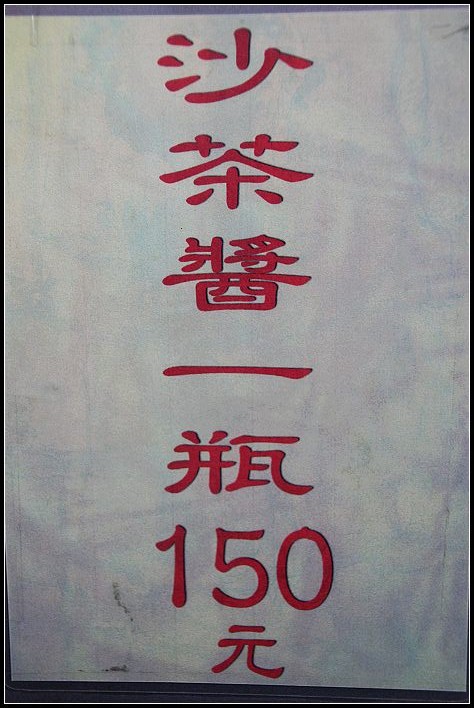 沙茶醬一瓶150元